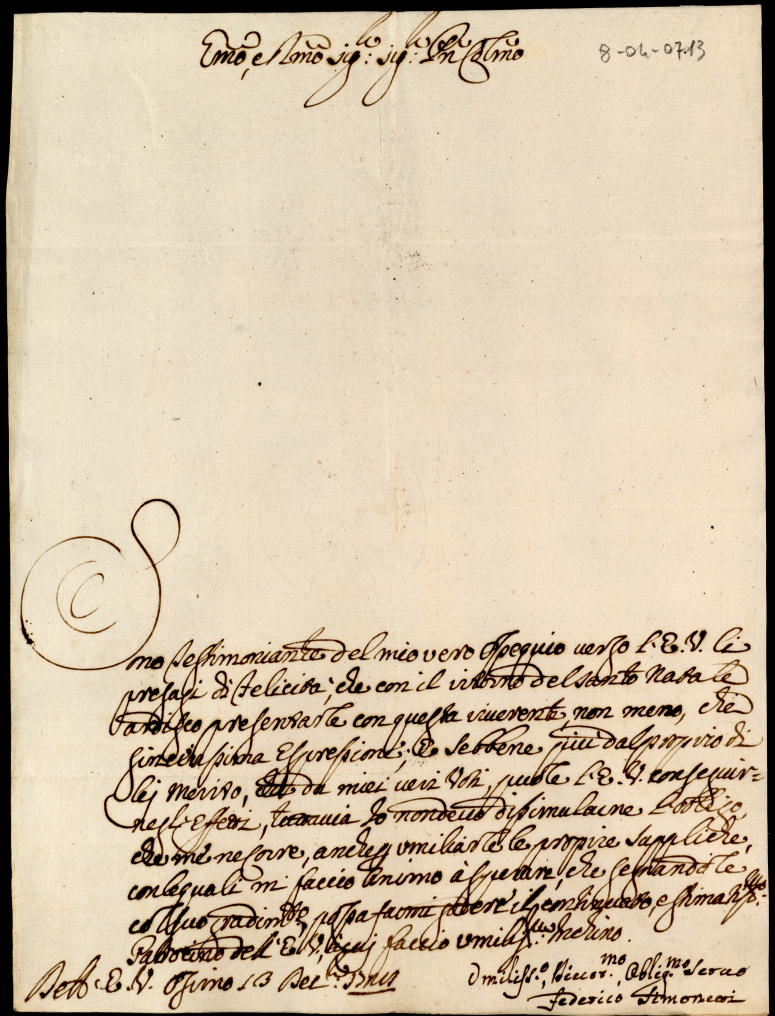 Emo, e Rmo Sigr: Sigr: Pñ Colmo
8-04-0713
Sono testimonianze del mio vero Ossequio verso l'E.V. li
presagi di felicità, che con il ritorno del Santo Natale
ardisco presentarle con questa riverente non meno, che
sincerissima Espressione; E sebbene più dal proprio di
lei merito, che da miei veri Voti, puole l'E.V. conseguir=
negl'Effetti, tuttavia Io non devo dissimularne l'obligo,
che me ne corre, anche umiliarle le proprie suppliche,
con le quali mi faccio animo à sperare, che
col suo gradimto, possa farmi godere il continuato, e stimatismo:
Patrocinio dell'E.V., faccio umilissmo: inchino.
Dell'E.V. Osimo 13 Decbre:
Umilisso:, Divotmo:, Obligmo: Servo
Federico Simonetti